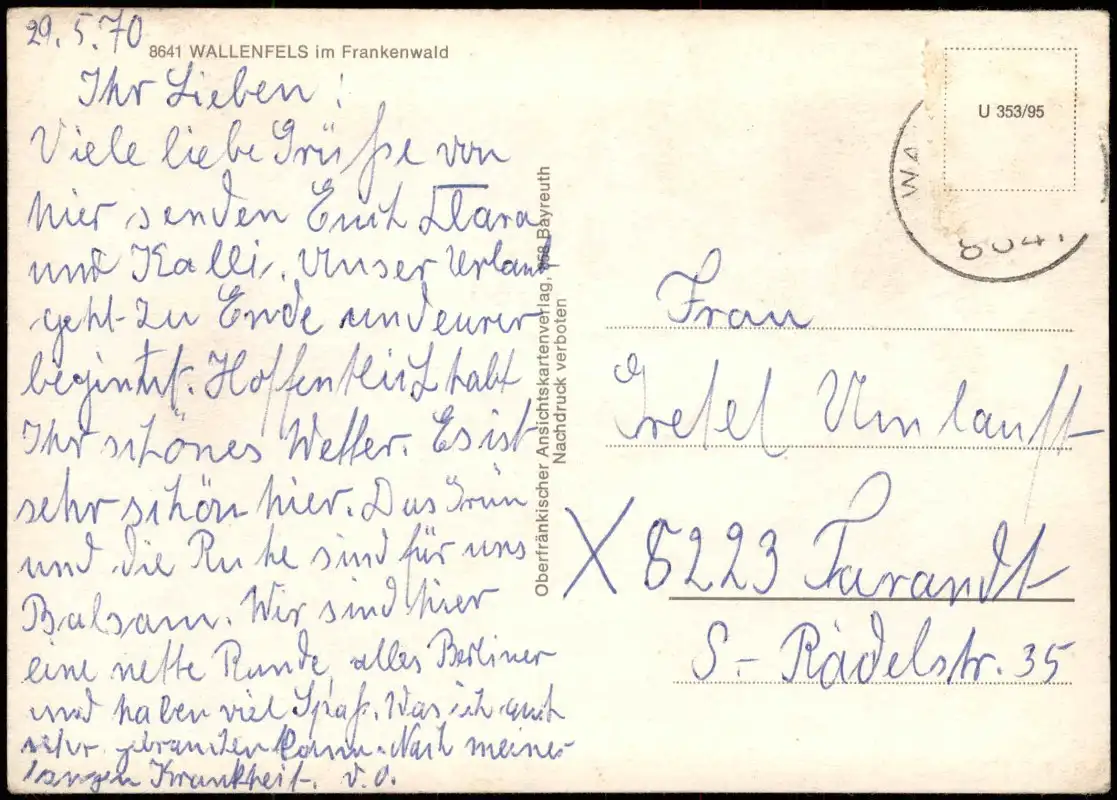 29.5.70
8641 WALLENFELS im Frankenwald
Ihr Lieben!
Viele liebe Grüße von
hier senden Euch Klara
und Kalli. Unser Urlaub
geht zu Ende und eurer
begintnt. Hoffentlich habt
Ihr schönes Wetter. Es ist
sehr schön hier. Das Grün
und die Ruhe sind für uns
Balsam. Wir sind hier
eine nette Runde, alles Berliner
und haben viel Spaß. Was ich auch
sehr gebrauchen kann. Nach meiner
langen Krankheit. v. o.
Oberfränkischer Ansichtskartenverlag, 858 Bayreuth
Nachdruck verboten
U 353/95
WA
8641
Frau
Gretel Umlauft
X 8223 Tarandt
S.-Rädelstr. 35